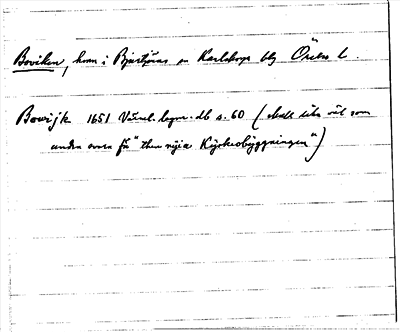 Boviken, hem. i Bjurtjärns sn Karlskoga bg Örebro l.
Bovijk 1651 Värml. lagm. db s. 60 ( skall så väl som
andra svara få "then nyia Kyrkiobyggningen")